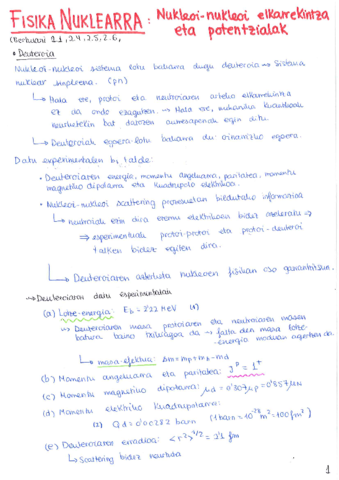 FISIKA NUKLEARRA: Nukleoi-nukleoi elkarrekintza
eta potentzialak
(Bertulani 2.1, 2.4, 2.5, 2.6,
• Deuteroia
Nukleoi-nukleoi sistema lotu bakarra dugu deuteroia → Sistema
nuklear sinpleena. (pn)
↳ Hala ere, protoi eta neutroiaren arteko elkarrekintza
ez da ondo ezagutzen. → Hala ere, mekanika kuantikoak
neurketekin bat datozen aurresapenak egin ditu.
↳ Deuteroiak egoera lotu bakarra du: oinarrizko egoera.
Datu experimentalen bi talde:
• Deuteroiaren energia, momentu angeluarra, paritatea, momentu
magnetiko dipolarra eta kuadrupolo elektrikoa.
• Nukleoi-nukleoi scattering prozesuetan bildutako informazioa
↳ neutroiak ezin dira eremu elektrikoen bidez azeleratu ⇒
⇒ esperimentuak protoi-protoi eta protoi-deuteroi
talken bidez egiten dira.
↳ Deuteroiaren azterketa nukleoen fisikan oso garrantzitsua.
→ Deuteroiaren datu esperimentalak
(a) Lotze-energia: Eb = 2'22 MeV (1)
→ Deuteroiaren masa protoiaren eta neutroiaren masen
batura baino txikiagoa da → falta den masa lotze-
energia moduan agertzen da.
↳ masa-defektua: Δm = mp + mn - md
(b) Momentu angeluarra eta paritatea: J^P = 1^+
(c) Momentu magnetiko dipolarra: μd = 0'857 μN
(d) Momentu elektriko kuadrupolarra:
(2) Qd = 0'00282 barn (1 barn = 10^-28 m² = 100 fm²)
(e) Deuteroiaren erradioa: <r²>^1/2 = 2'1 fm
↳ Scattering bidez neurtuta
1